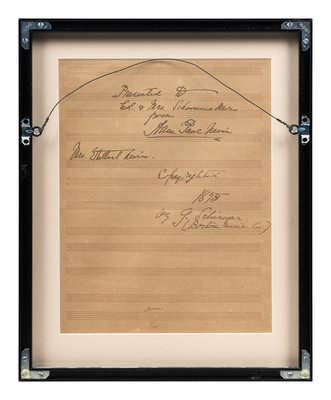 Presented to
Col. & Mrs. Schoonmaker
from
Anne Paul Nevin
Mrs. Ethelbert Nevin.
Copyrighted
1895
by G. Schirmer
(Boston Music Co)